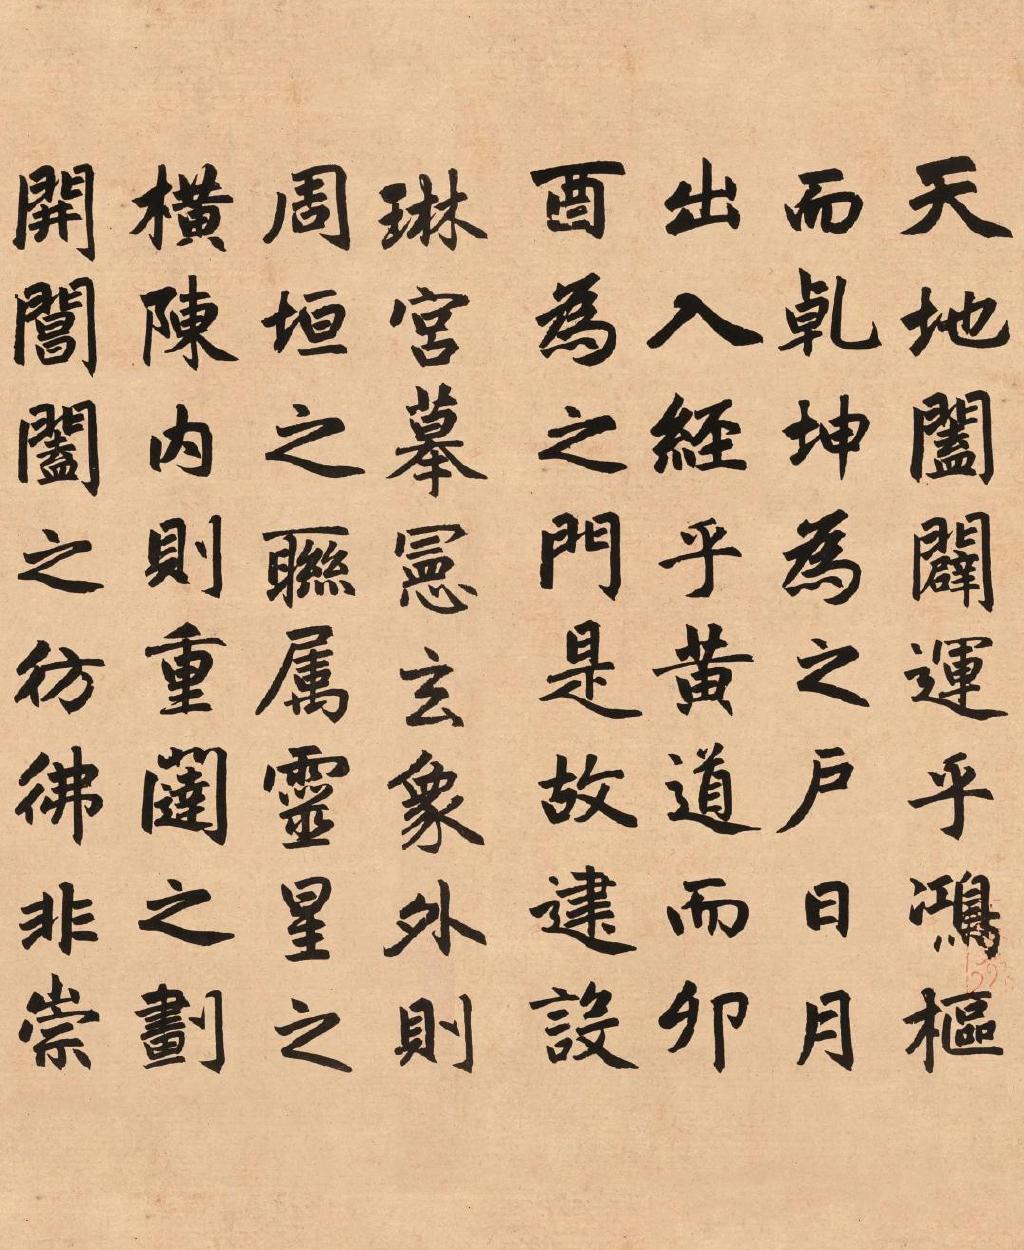 天地闔闢運乎鴻樞
而乹坤為之户日月
出入經乎黄道而卯
酉為之門是故建設
琳宮摹憲玄象外則
周垣之聯属靈星之
横陳内則重闥之劃
開閶闔之彷彿非崇